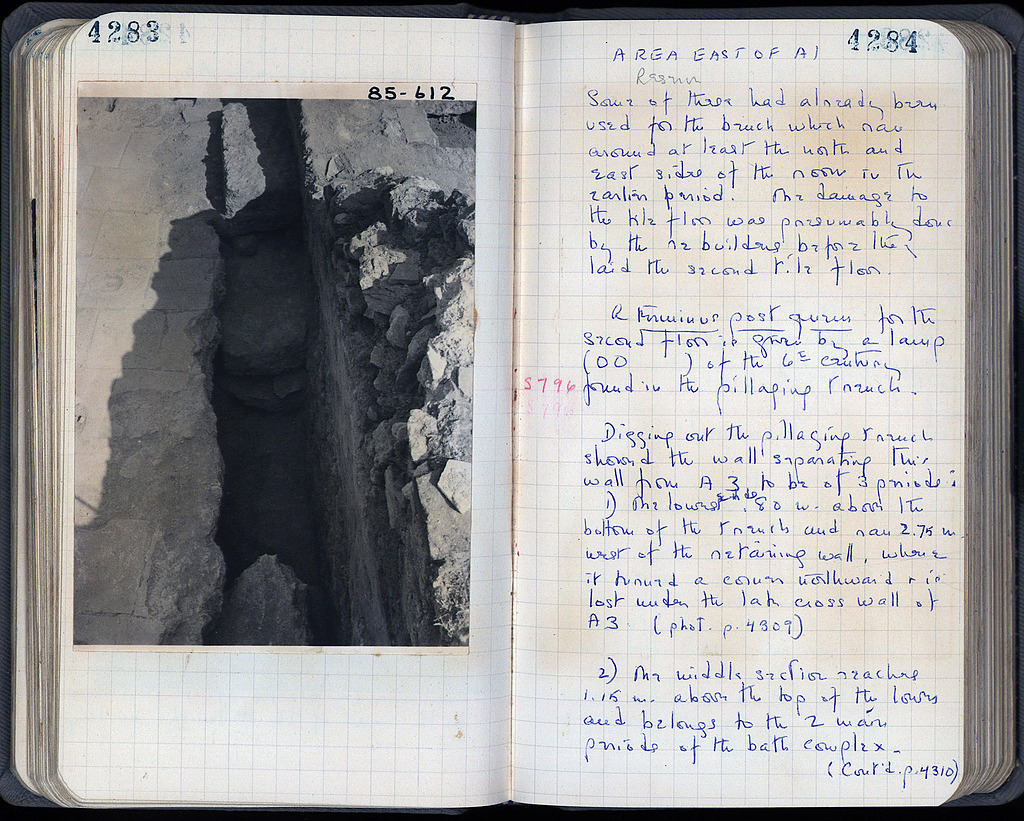 4283
85-612
4284
AREA EAST OF A1
Some of these had already been
used for the bench which ran
around at least the north and
east sides of the room in the
earlier period. The damage to
the tile floor was presumably done
by the rebuilders before they
laid the second tile floor.
A terminus post quem for the
second floor is given by a lamp
(00 ) of the 6th century
S796 found in the pillaging trench.
Digging out the pillaging trench
showed the wall separating this
wall from A3 to be of 3 periods:
1) The lowest ends .80 m. above the
bottom of the trench and ran 2.75 m.
west of the retaining wall, where
it turned a corner northward + is
lost under the late cross wall of
A3. (phot. p. 4309)
2) The middle section reaches
1.15 m. above the top of the lower
and belongs to the 2 main
periods of the bath complex.
(Cont'd. p. 4310)